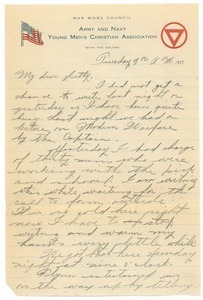 WAR WORK COUNCIL
ARMY AND NAVY
YOUNG MEN'S CHRISTIAN ASSOCIATION
"WITH THE COLORS"
Tuesday 9th 8 P.M.
My dear Letty,
I did not get a
chance to write last night or
yesterday as I have been quite
busy. Last night we had a
lecture on Modern Warfare
by the Captain.
Yesterday I had charge
of thirty men who were
working with the pick
and I am writing
this while waiting for the
call to form outside.
It is so cold here right
now I have to stop
writing and warm my
hands every little while.
We got here Sunday
night at nine o'clock.
entertained us
on the way up by telling